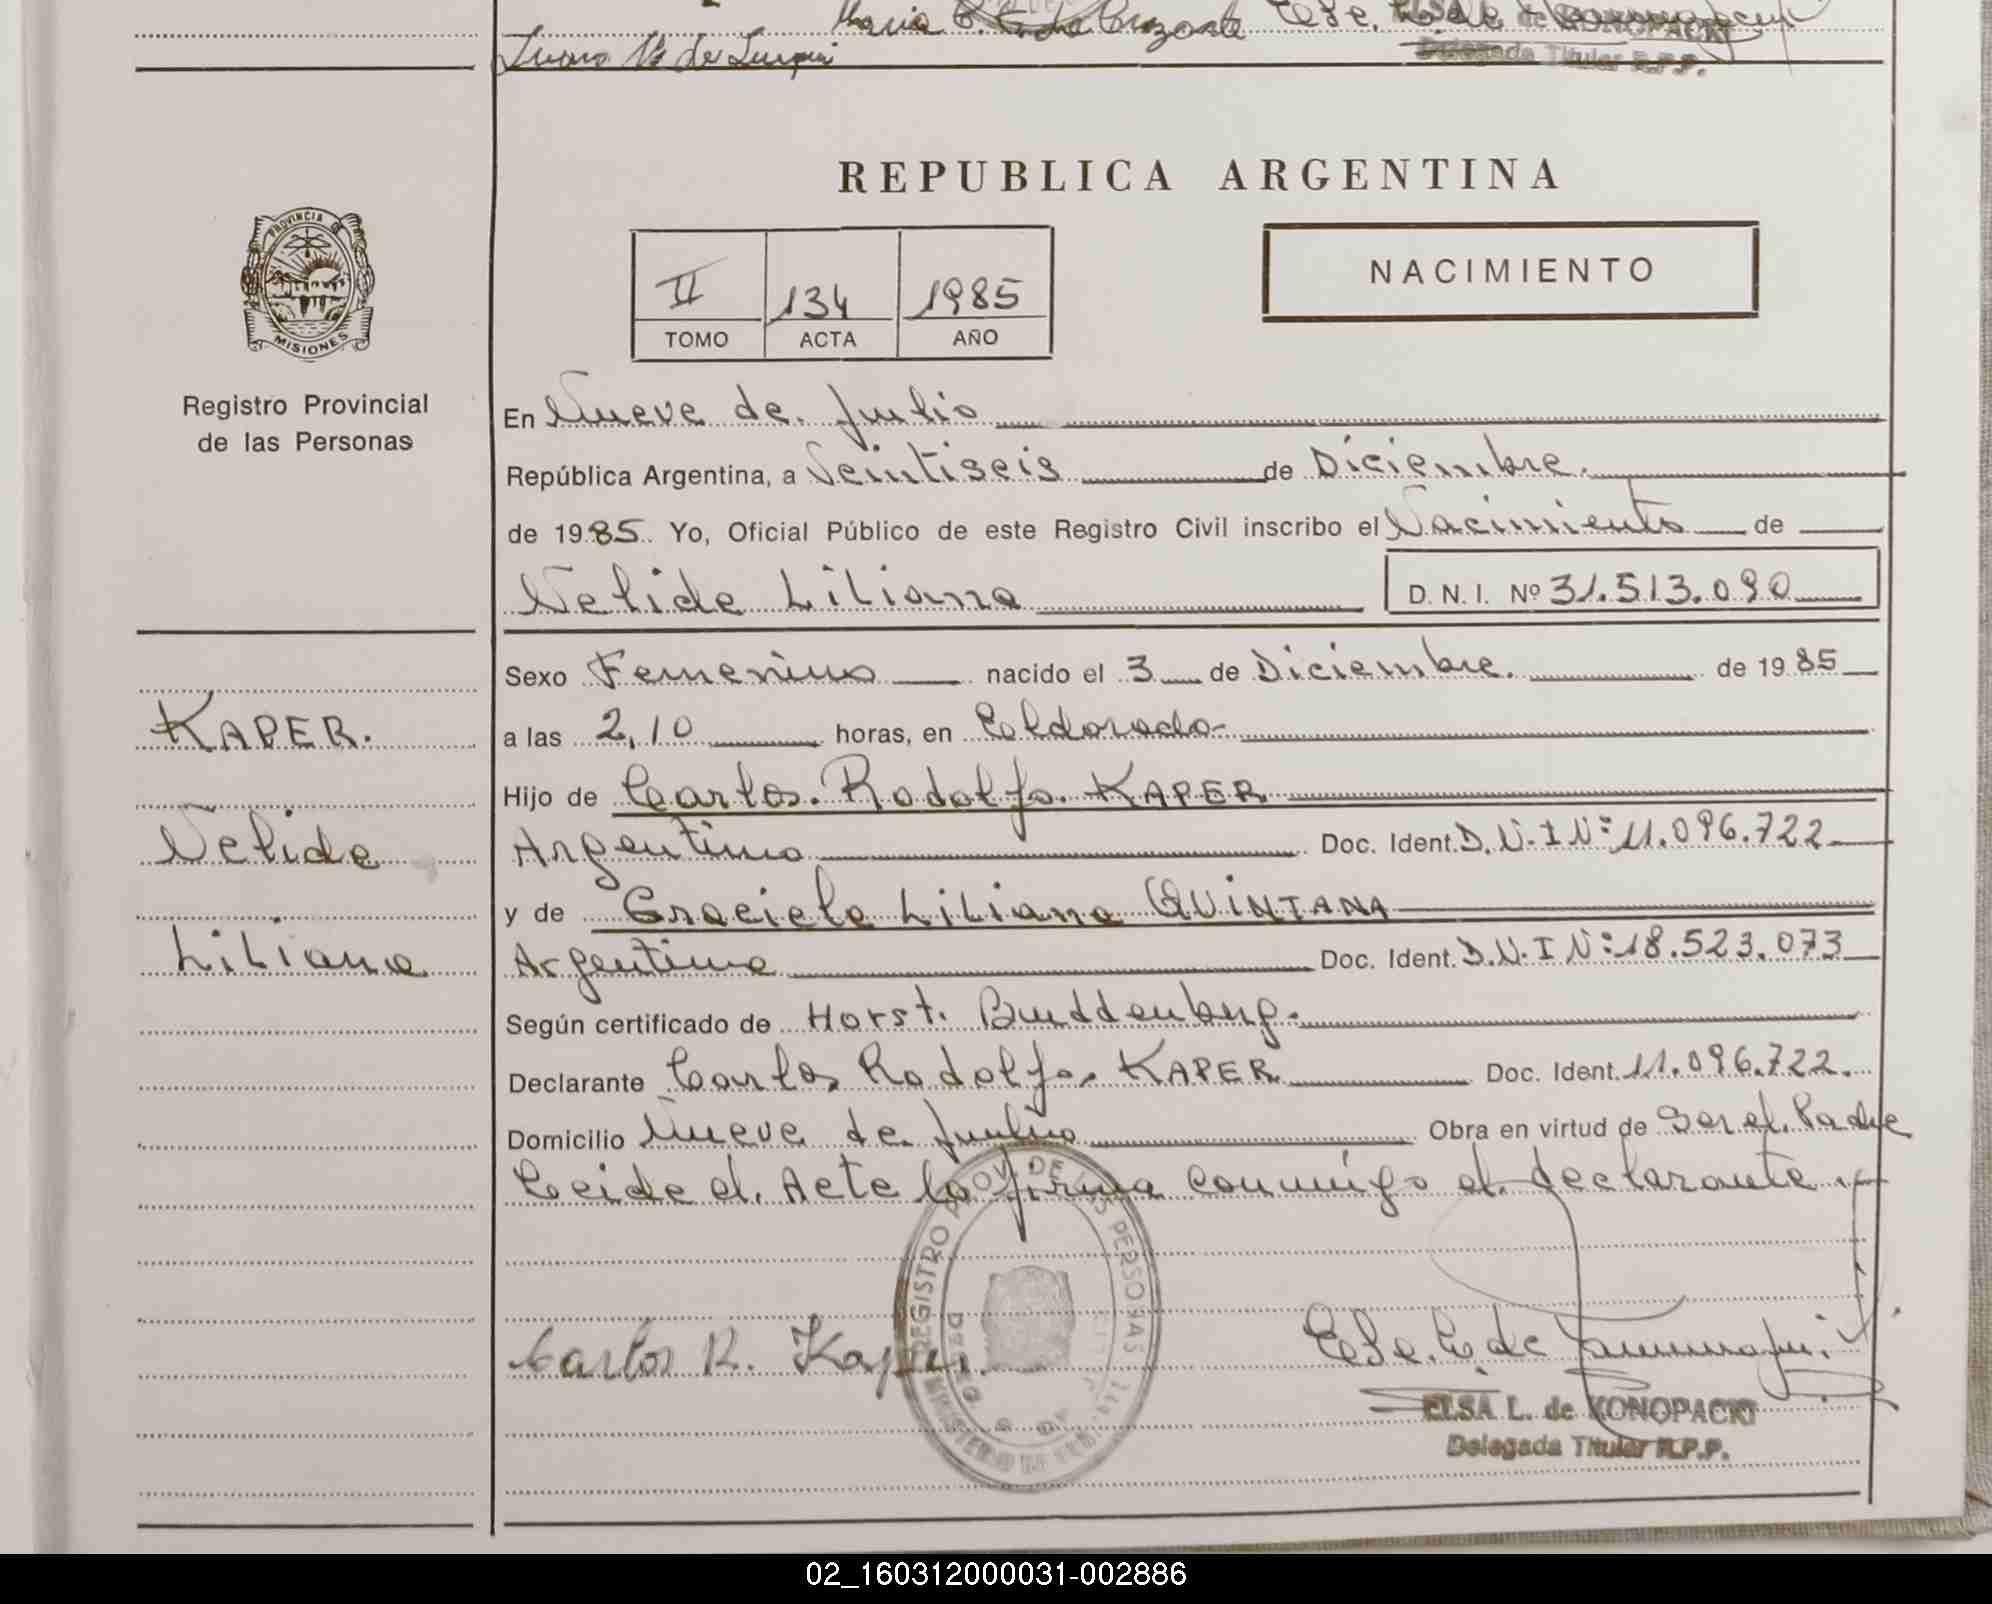 Maria
de
Delegada Titular R.P.P.
REPUBLICA ARGENTINA
PROVINCIA DE
MISIONES
Registro Provincial
de las Personas
NACIMIENTO
II 134 1985
TOMO ACTA AÑO
En Nueve de Julio
República Argentina, a Veintiseis de Diciembre.
de 1985. Yo, Oficial Público de este Registro Civil inscribo el Nacimiento de
Nelida Liliana D. N. I. Nº 31.513.090
Sexo Femenino nacido el 3 de Diciembre. de 1985
KAPER.
a las 2,10 horas, en Eldorado
Hijo de Carlos Rodolfo KAPER
Nelida
Argentino Doc. Ident. D.N.I Nº 11.096.722
y de Graciela Liliana QUINTANA
Liliana
Argentina Doc. Ident. D.N.I Nº 18.523.073
Según certificado de Horst. Buddenberg.
Declarante Carlos Rodolfo KAPER Doc. Ident. 11.096.722.
Domicilio Nueve de Julio Obra en virtud de Ser el Padre
Leida el Acta la firma conmigo el declarante
REGISTRO PROV. DE LAS PERSONAS
Carlos R. Kaper.
ELSA L. de KONOPACKI
Delegada Titular R.P.P.
02_160312000031-002886